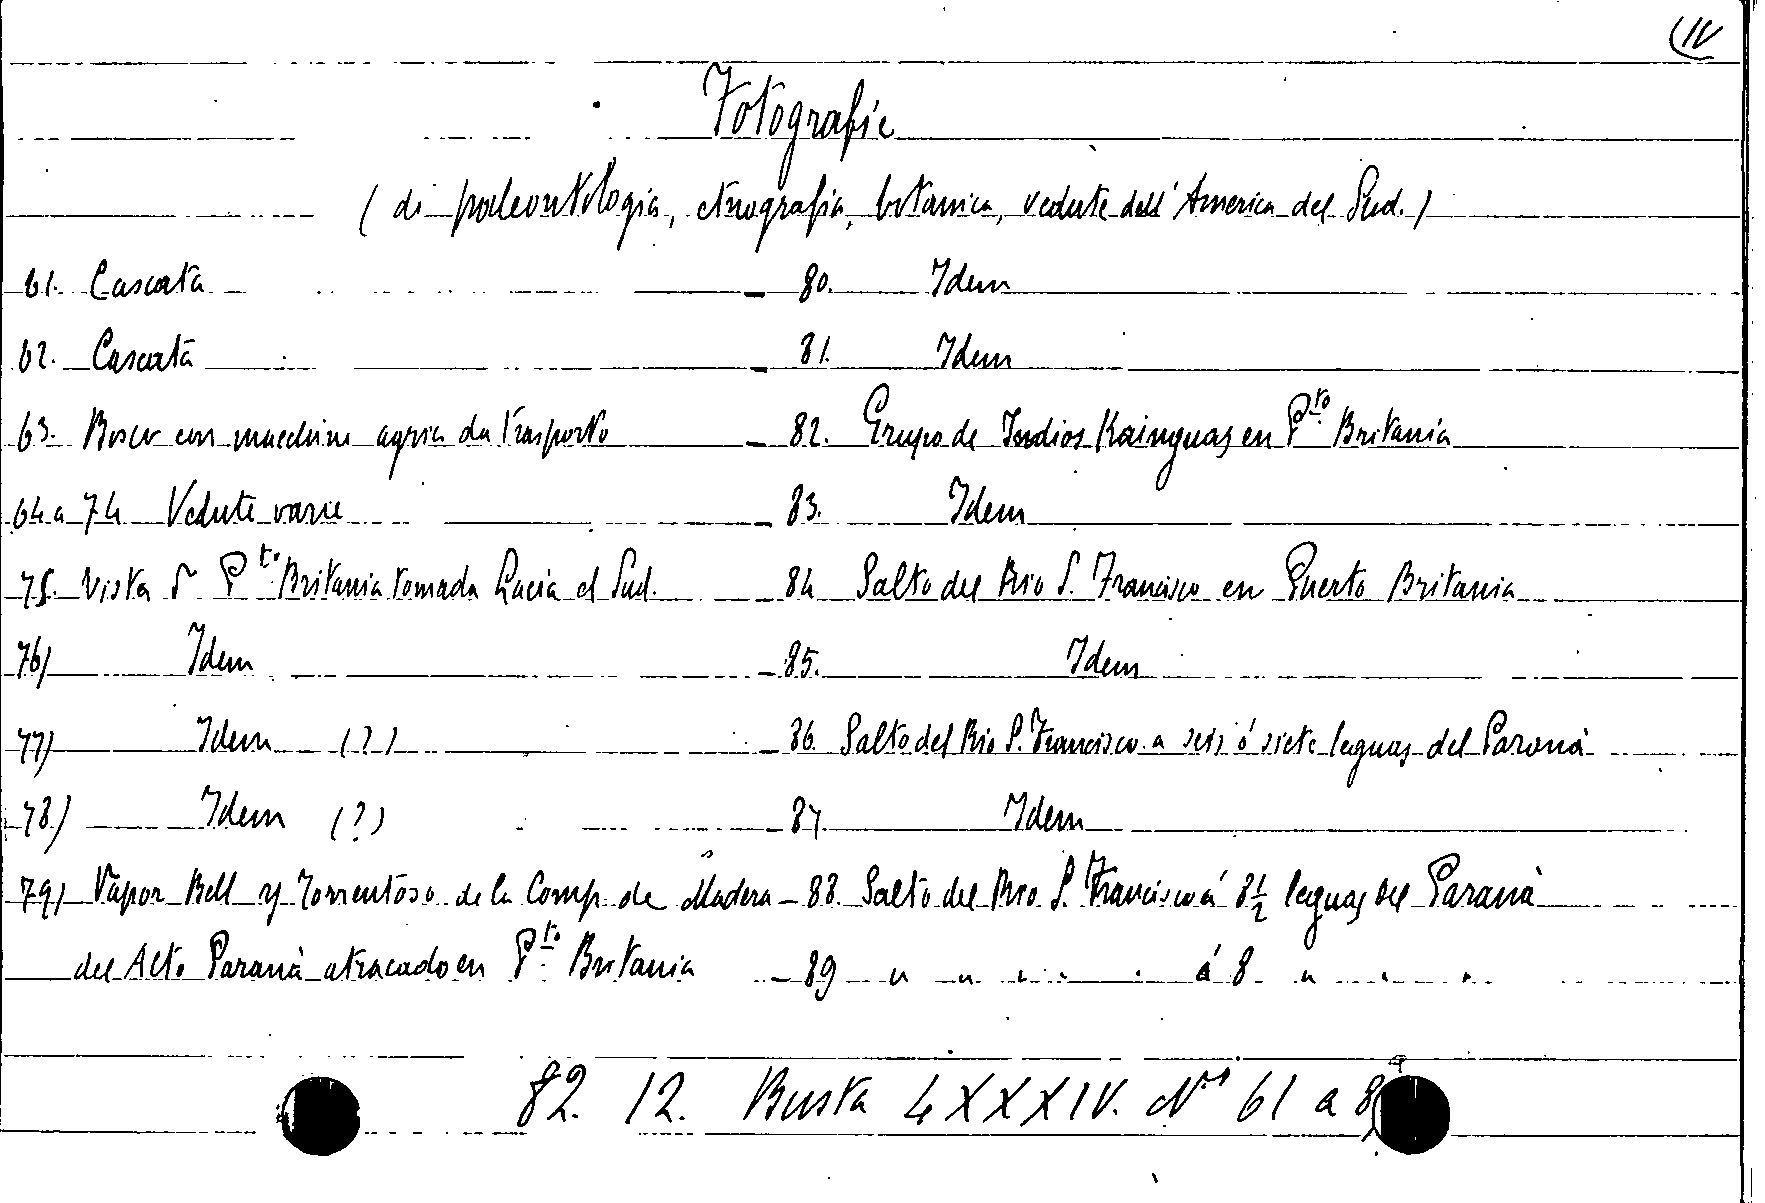 (IV
Fotografie
( di paleontologia, etnografia, botanica, vedute dell'America del Sud. )
61. Cascata
62. Cascata
63. Bosco con macchine agric da trasporto
64 a 74 Vedute varie
75. Vista P.to Britania tomada hacia el Sud.
76) Idem
77) Idem (?)
78) Idem (?)
79) Vapor Bell y Torrentoso de la Comp. de Madera
del Alto Paranà atracado en P.to Britania
80. Idem
81. Idem
82. Grupo de Indios Kainguas en P.to Britania
83. Idem
84 Salto del Rio S. Francisco en Puerto Britania
85. Idem
86. Salto del Rio S. Francisco a seis ó siete leguas del Paranà
87. Idem
88. Salto del Rio S. Francisco á 8 1/2 leguas del Paranà
89 " " " " " á 8 " " "
82. 12. Busta LXXXIV. N.i 61 a 89